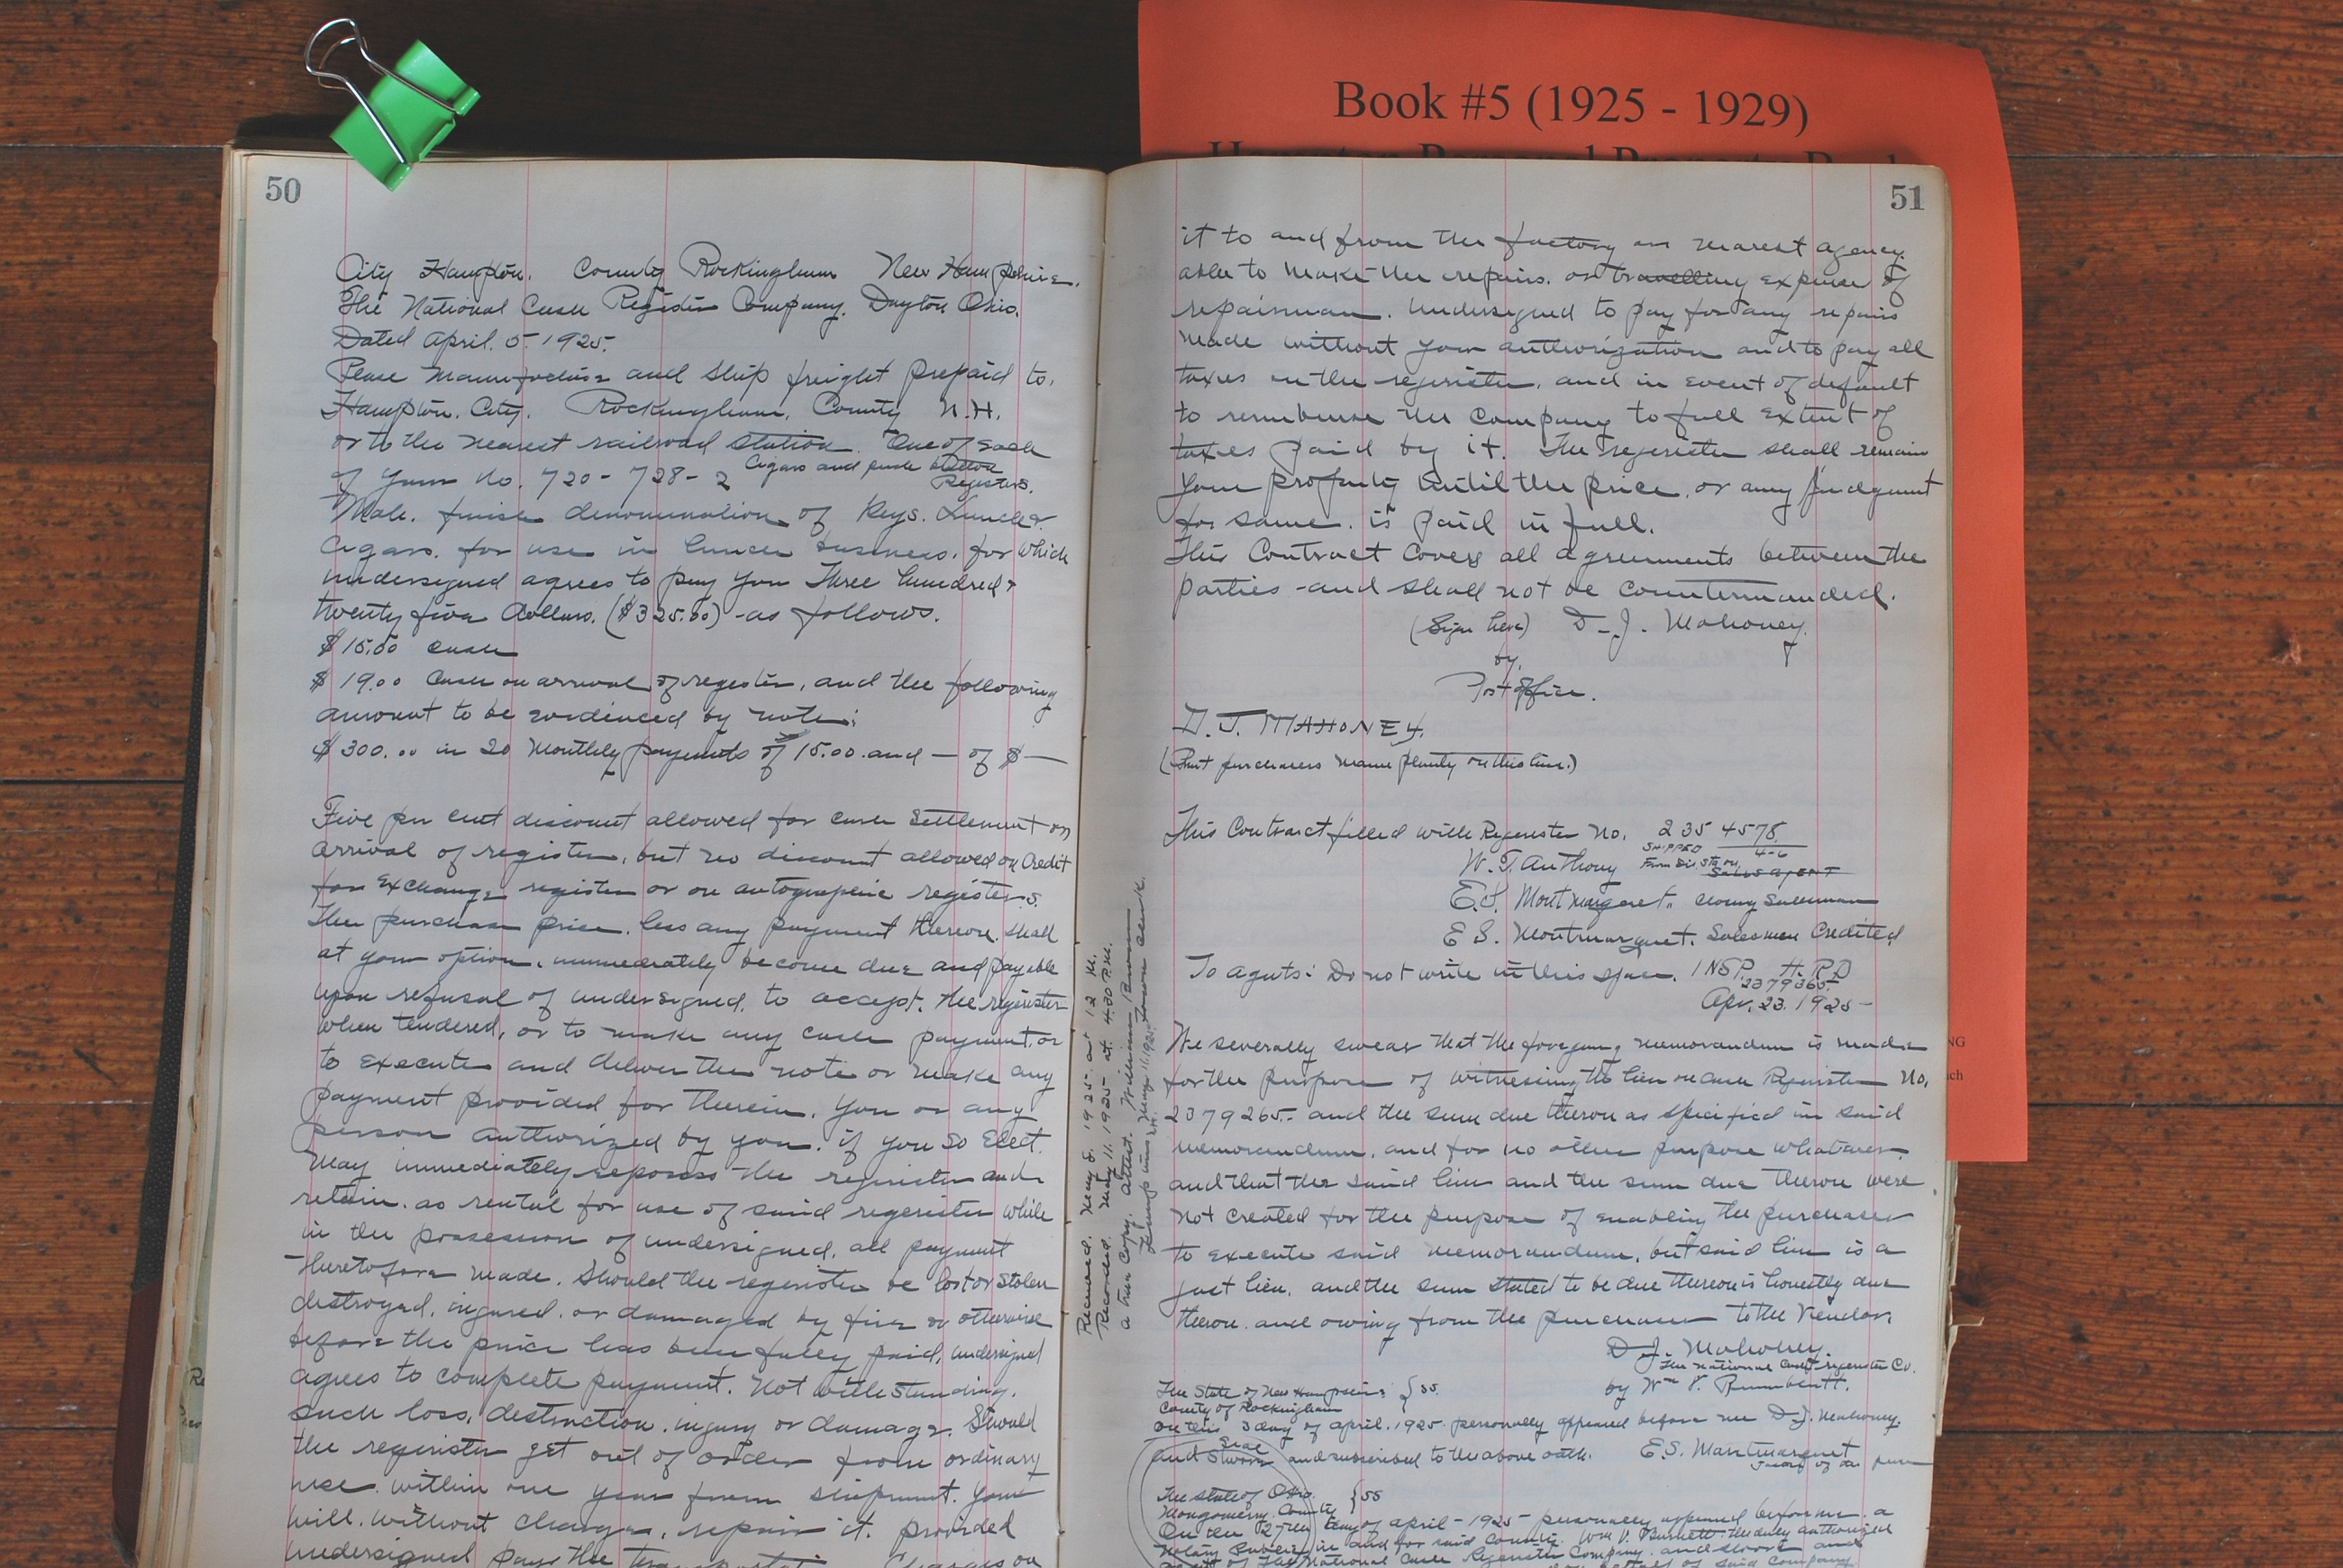 Book #5 (1925 - 1929)
50
City Hampton. County Rockingham New Hampshire.
The National Cash Register Company. Dayton Ohio.
Dated April. 5. 1925.
Please manufacture and ship freight prepaid to.
Hampton. City. Rockingham. County N.H.
or to the nearest railroad station. One of each
of your No. 720 - 728 - 2 Cigars and push button
Registers.
Mah. finish denomination of Keys. Lunch &
Cigars. for use in lunch business. for which
undersigned agrees to pay you Three hundred &
twenty five dollars. ($325.00) - as follows.
$15.00 cash
$19.00 Cash on arrival of register, and the following
amount to be evidenced by note:
$300.00 in 20 Monthly payments of 15.00 and — of $ —
Five per cent discount allowed for cash settlement on
arrival of register, but no discount allowed on Credit
for Exchange register or on autographic registers.
The purchase price. less any payment thereon. shall
at your option. immediately become due and payable
upon refusal of undersigned. to accept. the register
when tendered, or to make any cash payment. or
to execute and deliver the note or make any
payment provided for therein. You or any
person authorized by you. if you so Elect.
May immediately reposess the register and
retain. as rental for use of said register while
in the possession of undersigned. all payment
theretofore made. Should the register be lost or stolen
destroyed, injured. or damaged by fire or otherwise
before the price has been fully paid, undersigned
agrees to complete payment. Not with standing.
such loss, destruction. injury or damage. Should
the register get out of order from ordinary
use. within one year from shipment. You
will. without charge, repair it. provided
undersigned pays the transportation charges on
Received. May 8. 1925. at 12 M.
Recorded. May 11. 1925 at 4.30 P.M.
a true copy. attest. William Brown
Town Clerk.
51
it to and from the factory or nearest agency.
able to make the repairs. or travelling expense of
repairman. Undersigned to pay for any repairs
made without your authorization and to pay all
taxes on the register. and in event of default
to reimburse the company to full extent of
taxes paid by it. The register shall remain
your property until the price. or any judgment
for same. is paid in full.
This Contract covers all agreements between the
parties - and shall not be countermanded.
(Sign here) D. J. Mahoney.
by.
Post office.
D. J. MAHONEY.
(Print purchasers name plainly on this line.)
This Contract filled with Register No. 235 4578
SHIPPED 4-6
W. T. Anthony Sales agent
E.S. Montmarquet.
E S. Montmarquet. Salesman Credited
To agents: Do not write in this space. INSP. H. R.D
2379265.
Apr. 23. 1925 -
We severally swear that the foregoing memorandum is made
for the purpose of witnessing the lien on Cash Register No.
2379265. - and the sum due thereon as specified in said
memorandum, and for no other purpose whatever.
and that the said lien and the sum due thereon were
not created for the purpose of enabling the purchaser
to execute said memorandum, but said lien is a
just lien. and the sum stated to be due thereon is honestly due
thereon. and owing from the purchaser to the Vendor.
D. J. Mahoney.
The National Cash register Co.
by Wm V.
The State of New Hampshire } SS.
County of Rockingham
On this 3 day of April. 1925. personally appeared before me D. J. Mahoney.
and Swore and subscribed to the above oath. E.S. Montmarquet
Seal
Justice of the peace
The State of Ohio. } SS
Montgomery County
On the 27th day of April - 1925 - personally appeared before me. a
Notary Public in and for said County. Wm V. the duly authorized
agent of The National Cash Register Company. and swore and